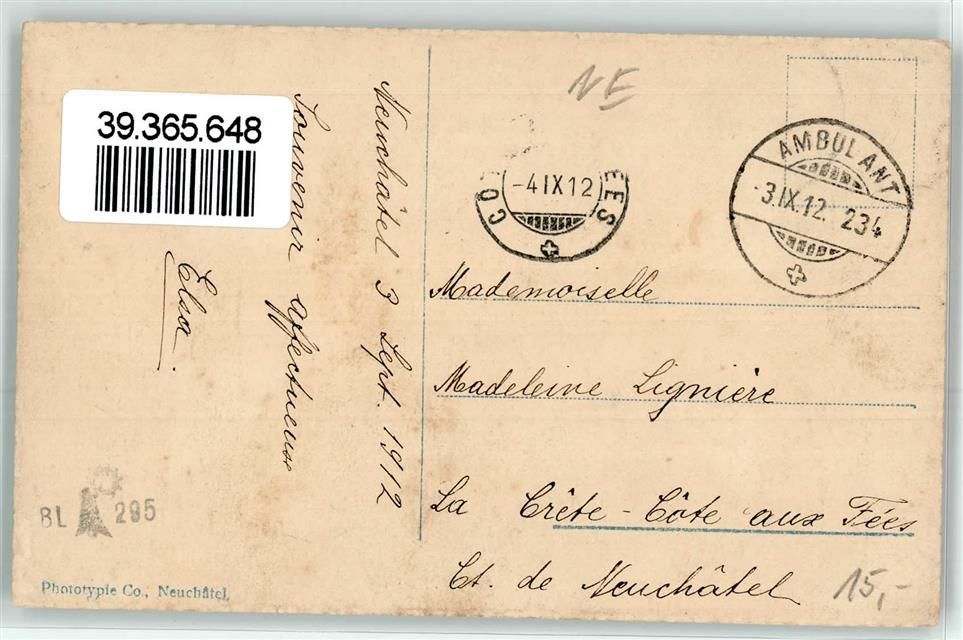 39.365.648
Neuchâtel 3 Sept. 1912
Souvenir affectueux
Elsa.
BL 295
Phototypie Co., Neuchâtel.
NE
AMBULANT
-3.IX.12. 234
CO EES
-4 IX 12
Mademoiselle
Madeleine Lignière
La Crête - Côte aux Fées
Ct. de Neuchâtel
15,-